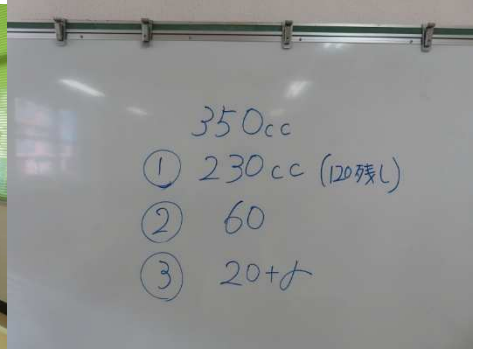 350cc
① 230cc (120残し)
② 60
③ 20+α